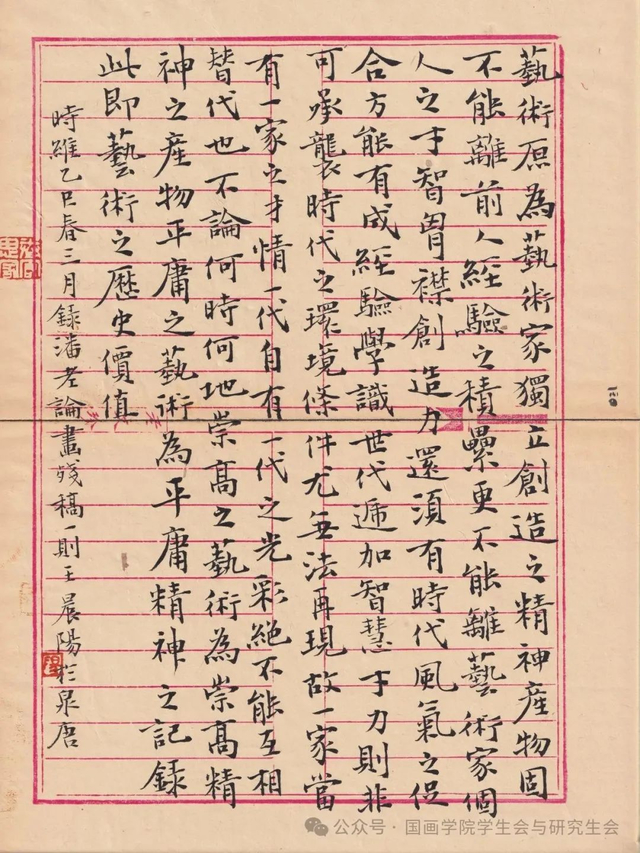 藝術原為藝術家獨立創造之精神產物固
不能離前人經驗之積纍更不能離藝術家個
人之才智胷襟創造力還須有時代風氣之促
合方能有成經驗學識世代遞加智慧才力則非
可承襲時代之環境條件尤無法再現故一家當
有一家之才情一代自有一代之光彩絕不能互相
替代也不論何時何地崇高之藝術為崇高精
神之產物平庸之藝術為平庸精神之記錄
此即藝術之歷史價值
時維乙巳春三月錄潘老論畫殘稿一則王晨陽於泉唐
公众号·国画学院学生会与研究生会